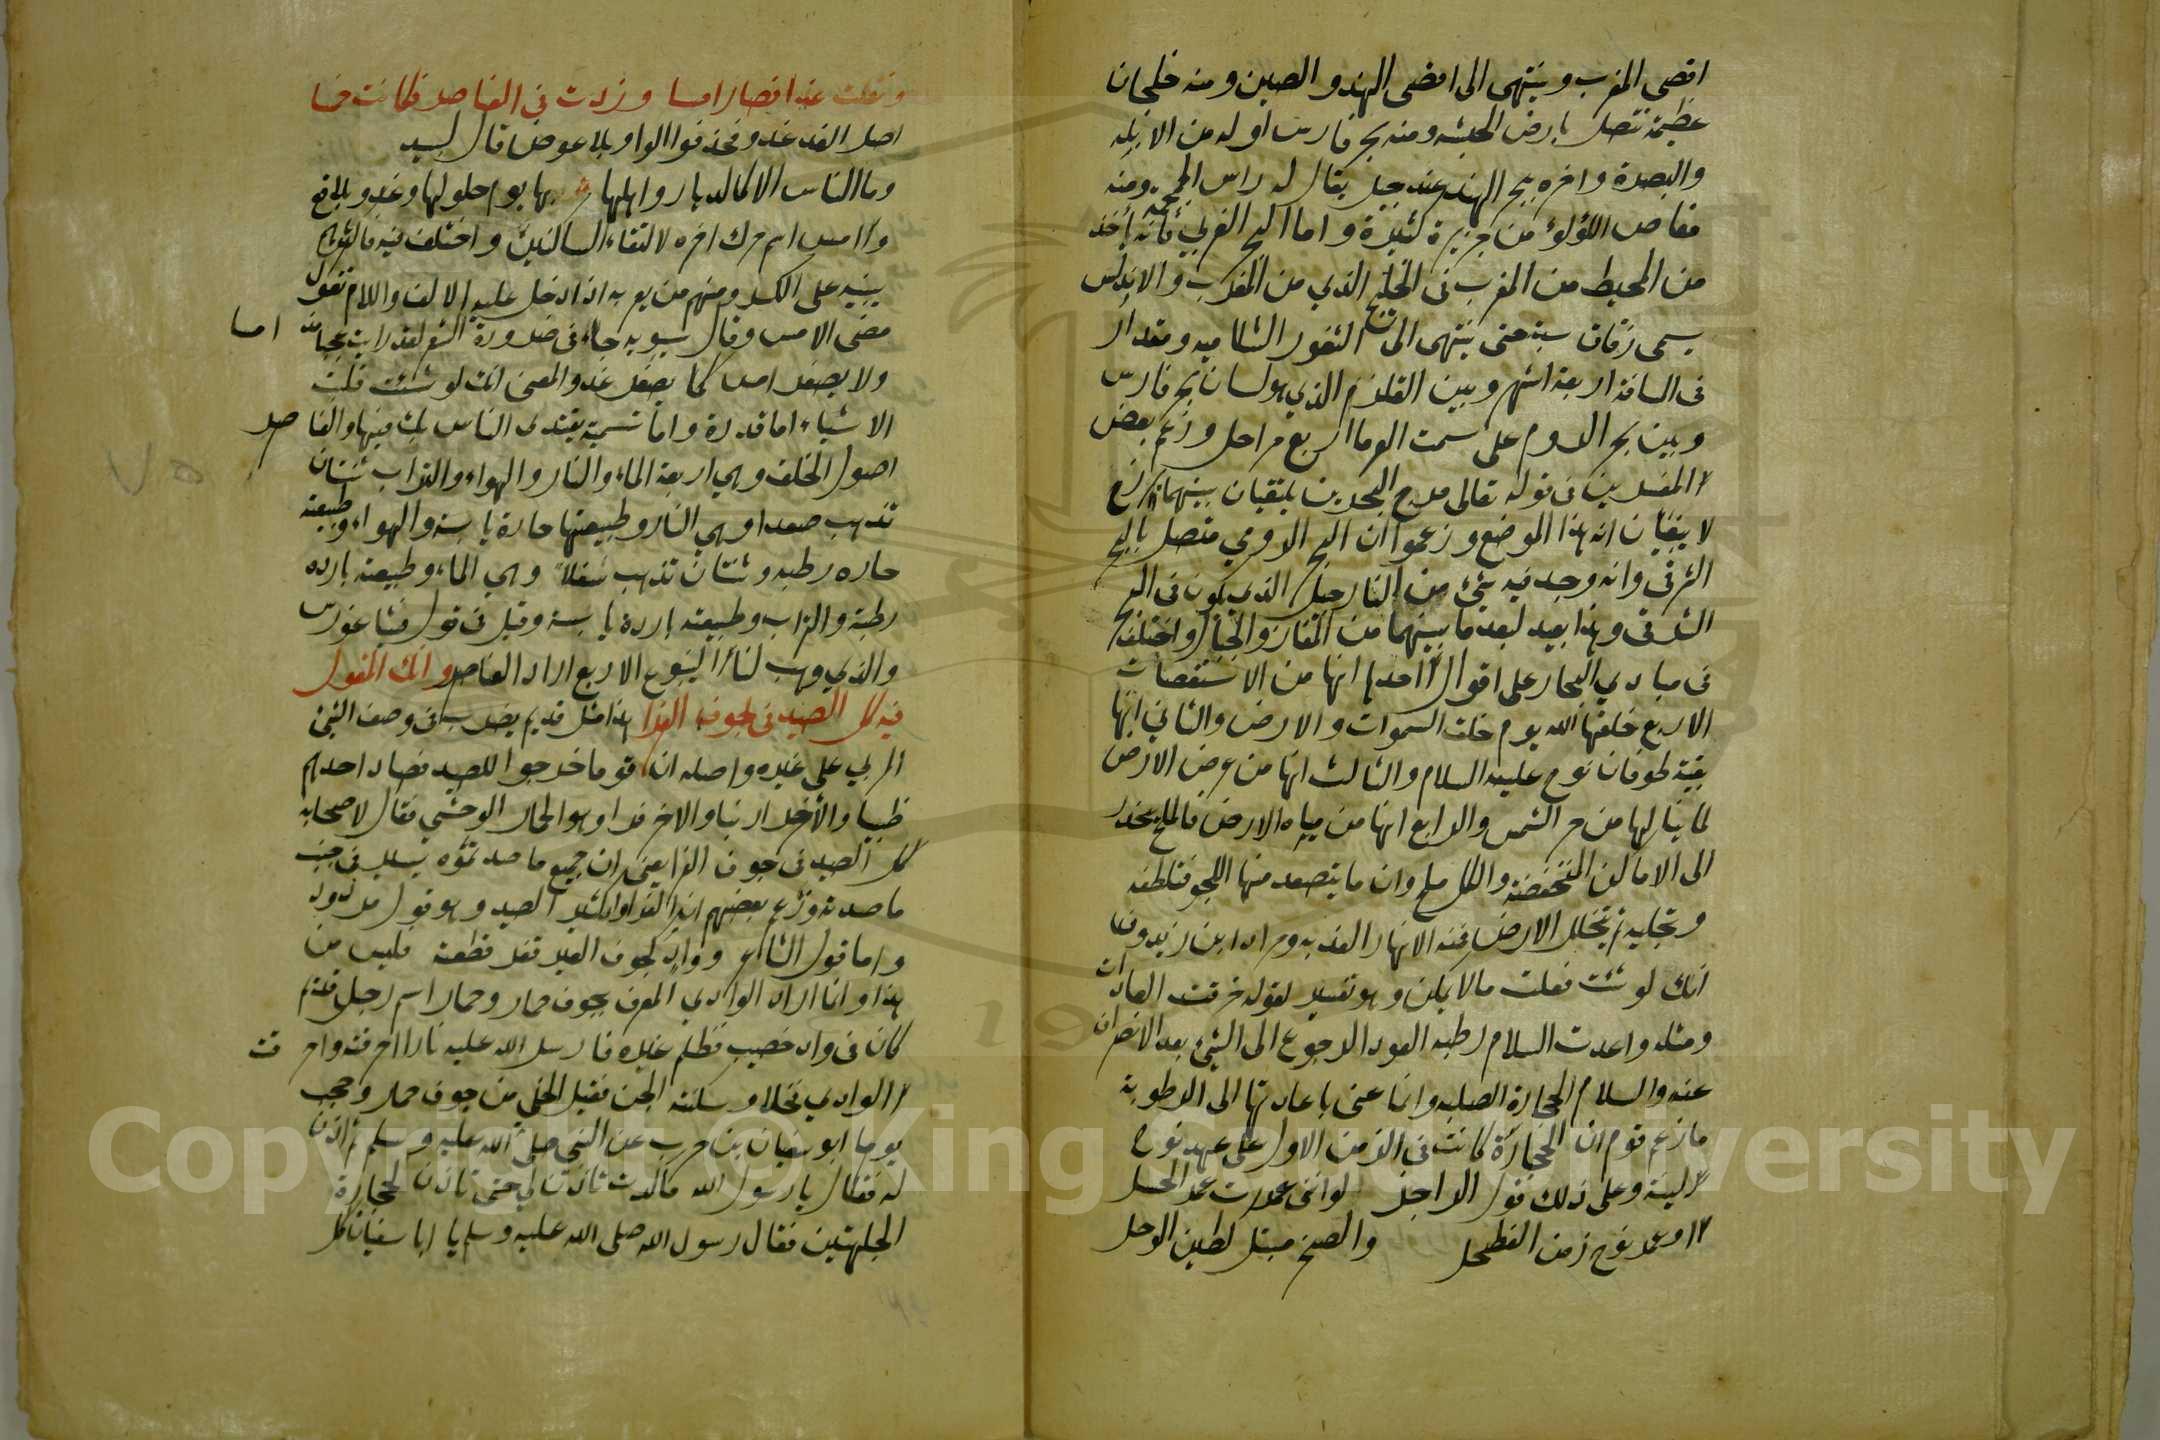 اقصى المغرب وينتهى الى اقصى الهند والصين ومنه خلجان
عظيمة تتصل بارض الحبشه ومنه بحر فارس اوله من الابله
والبصرة واخره بحر الهند عند جبل يقال له راس الجمجمه ومنه
مغاص اللؤلؤ من جزيرة كثيرة واما البحر الغربي فانه ياخذ
من المحيط من المغرب فى الخليج الذي من المغرب والاندلس
يسمى زقاق سبته حتى ينتهى الى الثغور الشاميه ومقدار
فى المسافة اربعة اشهر وبين القلزم الذي هو لسان بحر فارس
وبين بحر الروم على سمت الفرما اربع مراحل وزعم بعض
المفسرين فى قوله تعالى مرج البحرين يلتقيان بينهما برزخ
لا يبغيان انه هذا الموضع وزعموا ان البحر الرومي متصل بالبحر
الشرقى وانه وجد فيه شئ من النارجيل الذي يكون فى البحر
الشرقى وهذا بعيد لبعد ما بينهما من القفار والجبال واختلف
فى مبادي البحار على اقوال احدها انها من الاستقصات
الاربع خلقها الله يوم خلق السموات والارض والثانى انها
بقية طوفان نوح عليه السلام والثالث انها من عرق الارض
لما ينالها من حر الشمس والرابع انها من مياه الارض فالملح ينحدر
الى الاماكن المنخفضة والكل ملح وان ما يتصعد منها الى الجو فتلطفه
وتحليه ثم يتخلل الارض فمنه الانهار العذبه ومراد ابن زيدون
انك لو شئت فعلت مالا يمكن وهو تفسير لقوله خرقت العادات
ومثله واعدت السلام رطبه العود الرجوع الى الشئ بعد الانصراف
عنه والسلام الحجارة الصلبه وانما عنى باعادتها الى الرطوبة
ما زعم قوم ان الحجارة كانت فى الزمن الاول على عهد نوح
لينة وعلى ذلك قول الراجز لو اننى عمرت عمر الحسل
او عمر نوح زمن الفطحل والصخر مبتل كطين الوحل
ونقلت غدا فصار امسا وزدت فى العناصر فكانت خمسا
اصل الغد غدو فحذفوا الواو بلا عوض قال لبيد
وما الناس الا كالديار واهلها بها يوم حلولها وغدو بلاقع
واامس اسم حرك اخره لالتقاء الساكنين واختلف فيه فاكثرهم
يبنيه على الكسر ومنهم من يعربه اذا دخل عليه الالف واللام تقول
مضى الامس وقال سيبويه جاء فى ضرورة الشعر لقد رايت عجبا مذ امسا
ولا يصغر امس كما يصغر غد والمعنى انك لو شئت قلبت
الاشياء اما قدرة واما تسمية يقتدى الناس بك فيها والعناصر
اصول الخلف وهى اربعة الماء والنار والهواء والتراب ثنتان
تذهب صعدا وهي النار وطبيعتها حارة يابسة والهواء وطبيعته
حاره رطبه وثنتان تذهب سفلا وهي الماء وطبيعته بارده
رطبة والتراب وطبيعته باردة يابسة وقيل فى قول فيثاغورس
والذي وهب لنا الينبوع الاربع اراد العناصر وانك المقول
فيه كل الصيد فى جوف الفرا هذا مثل قديم يضرب فى وصف الشئ
المربي على غيره واصله ان قوما خرجوا للصيد فصاد احدهم
ظبيا والاخر ارنبا والاخر فرا وهو الحمار الوحشي فقال لاصحابه
كل الصيد فى جوف الفرا يعنى ان جميع ما صدتموه يسير فى جنب
ما صدته وزعم بعضهم ان الفرا واكثير الصيد وهو قول مردود
واما قول الشاعر وواد كجوف العير قفر قطعته فليس من
هذا وانما اراد الوادي المعرف بجوف حمار وحمار اسم رجل قديم
كان فى واد خصيب فظلم غيره فارسل الله عليه نارا احرقته واحرقت
الوادي فخلا وسكنته الجن فقيل اخلى من جوف حمار وحجب
يوما ابو سفيان بن حرب عن النبى صلى الله عليه وسلم ثم اذن
له فقال يا رسول الله ماكدت تاذن لي حتى تاذن لحجارة
الجلهتين فقال رسول الله صلى الله عليه وسلم يا ابا سفيان كل
٧٥
Copyright © King Saud University